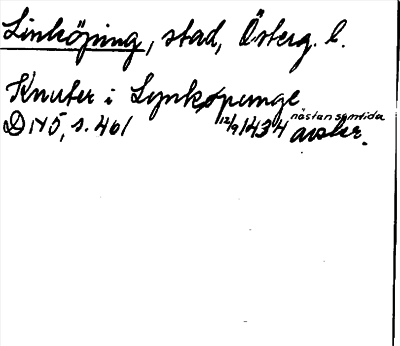 Linköping, stad, Österg. l.
Knuter i Lynkøpunge
D nr 5, s. 461 12/9 1434 nästan samtida avskr.